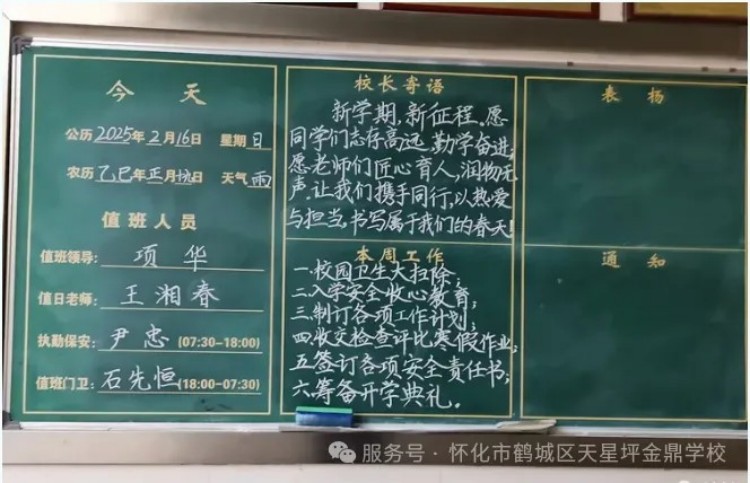 今天
公历 2025年 2月 16日 星期 日
农历 乙巳年 正月 日 天气 雨
值班人员
值班领导: 项华
值日老师: 王湘春
执勤保安: 尹忠 (07:30-18:00)
值班门卫: 石先恒 (18:00-07:30)
校长寄语
新学期,新征程,愿
同学们志存高远,勤学奋进;
愿老师们匠心育人,润物无
声.让我们携手同行,以热爱
与担当,书写属于我们的春天!
本周工作
一.校园卫生大扫除;
二.入学安全收心教育;
三.制订各项工作计划;
四.收交检查评比寒假作业;
五.签订各项安全责任书;
六.筹备开学典礼.
表扬
通知
服务号 · 怀化市鹤城区天星坪金鼎学校